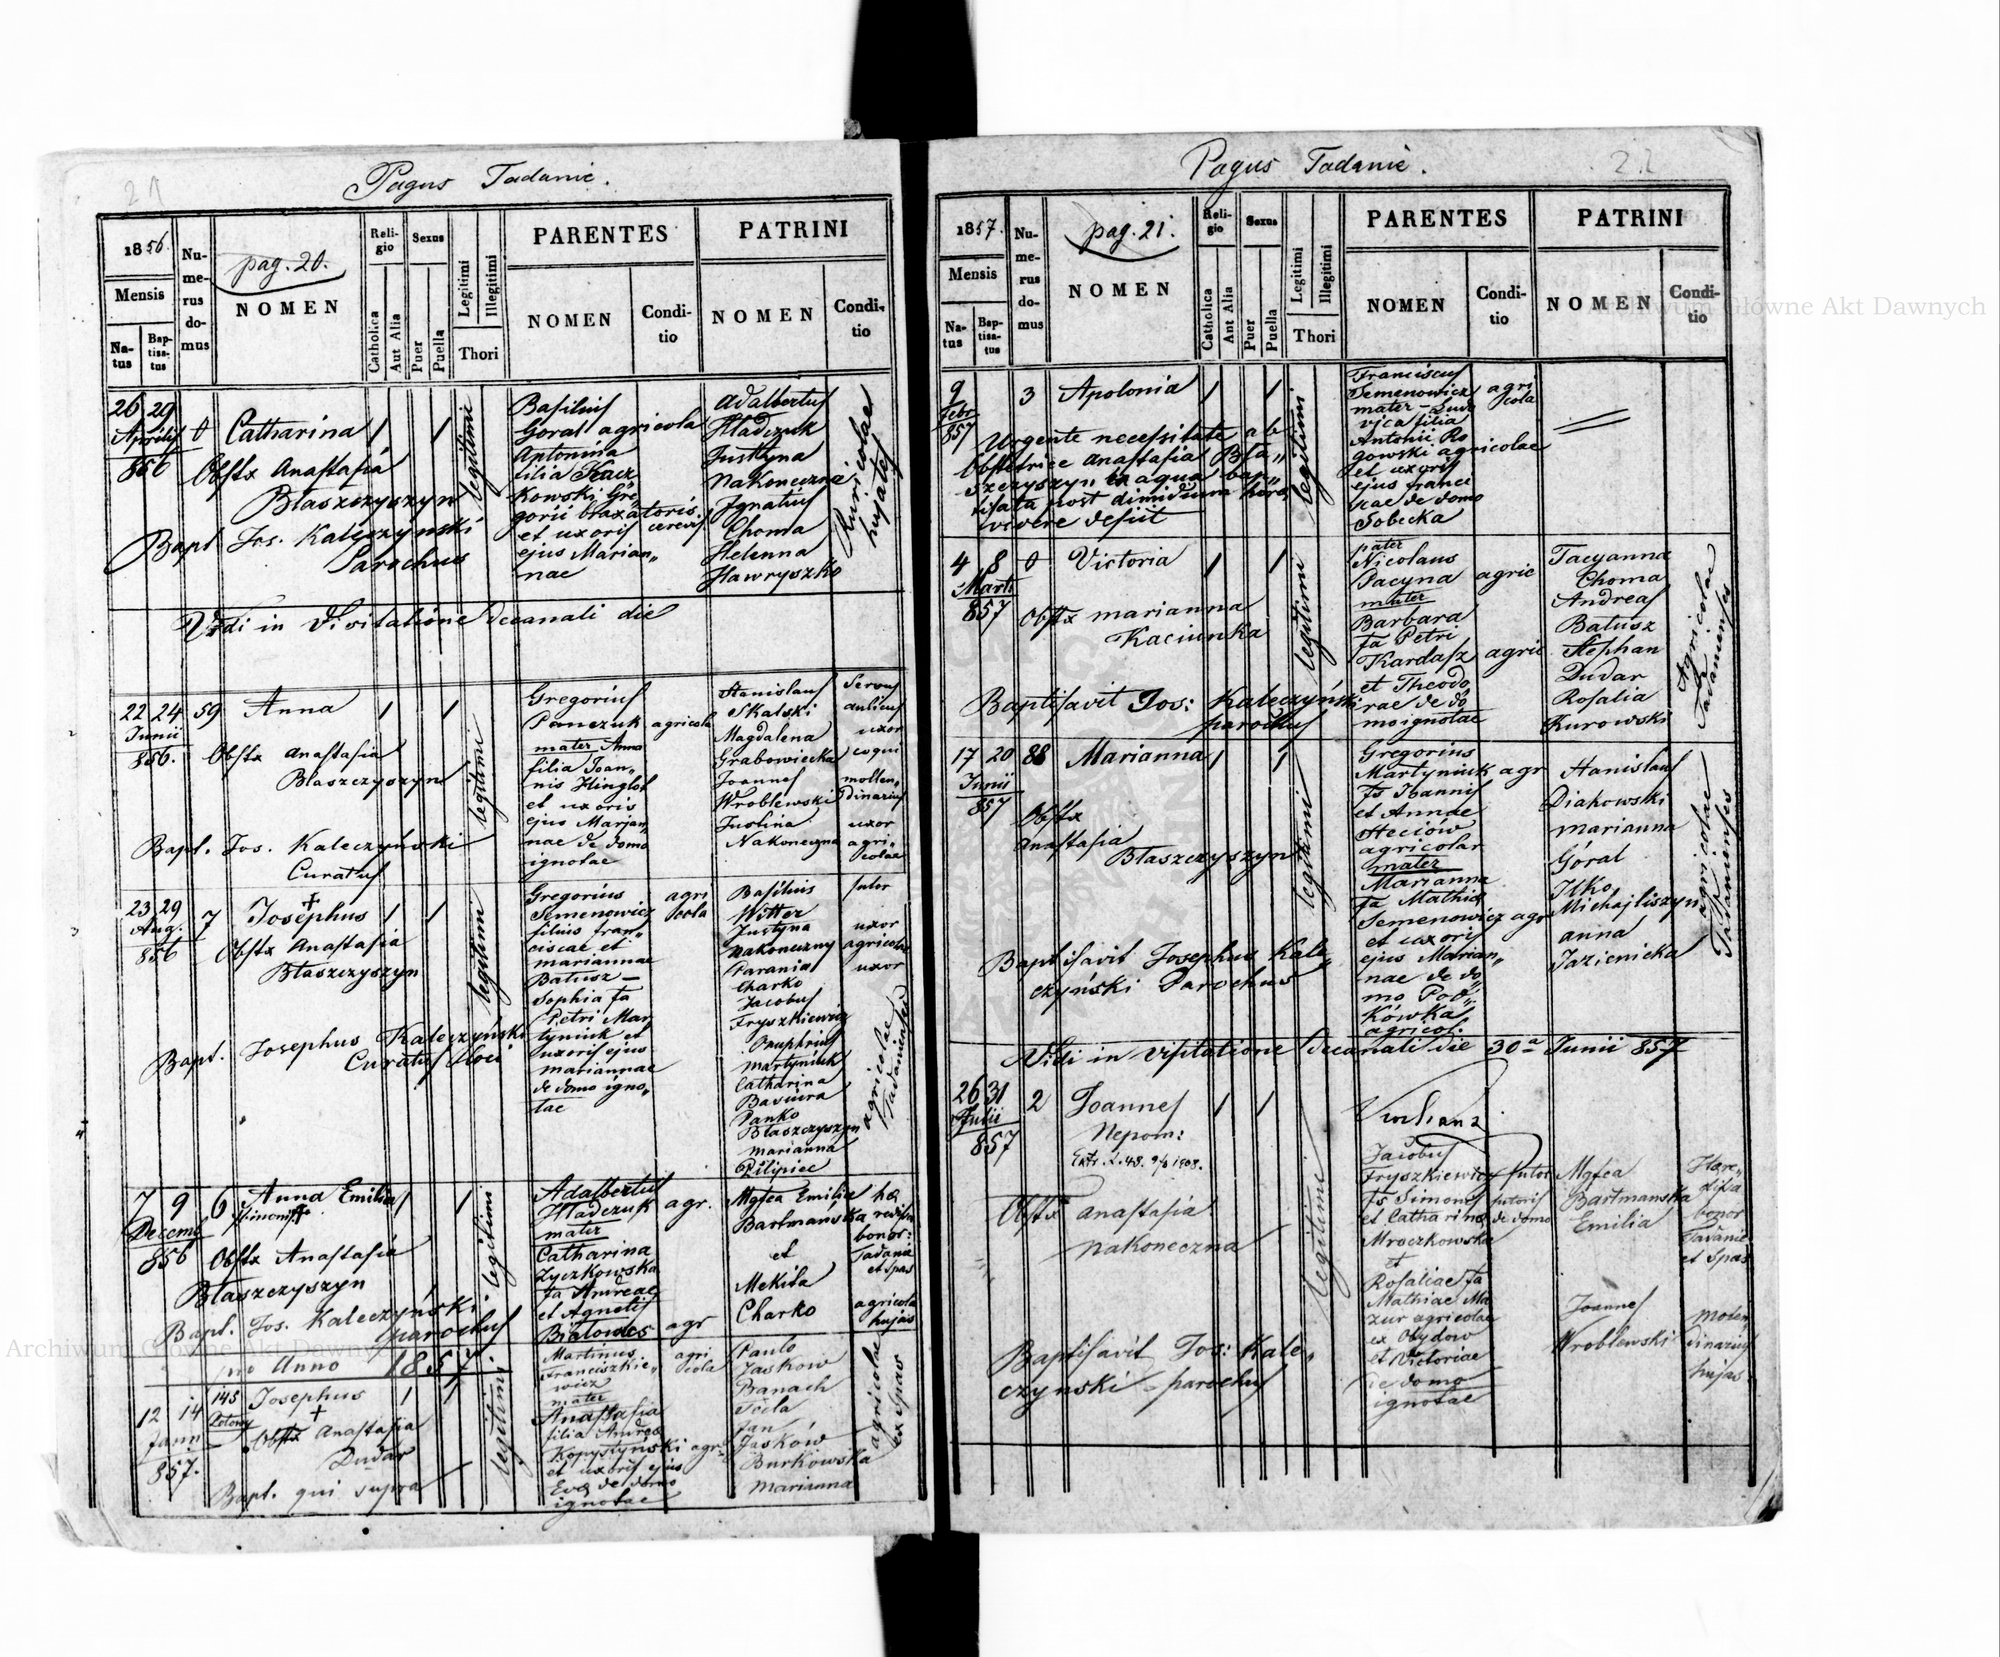 21
Pagus Tadanie.
1856.
Mensis
Natus
Baptisatus
Numerus domus
pag. 20.
NOMEN
Religio
Catholica
Aut Alia
Sexus
Puer
Puella
Legitimi
Illegitimi
Thori
PARENTES
NOMEN
Conditio
PATRINI
NOMEN
Conditio
26 29
Aprilis
856
0
Catharina 1 1
Obstx Anastasia
Błaszczyszyn
Bapt Jos. Kaleczynski
Parochus
legitimi
Basilius
Goral agricola
Antonina
filia Kacz
kowski Gre
gorii braxatoris
et uxoris cerevis
ejus Marian„
nae
Adalbertus
Hladczuk
Justyna
Nakoneczna
Ignatius
Choma
Helenna
Hawryszko
Ruricolae
hujates
Vidi in Visitatione Decanali die
22 24
Junii
856.
59
Anna 1 1
Obstx Anastasia
Błaszczyszyn
Bapt. Jos. Kaleczyński
Curatus
legitimi
Gregorius
Panczuk agricola
mater Anna
filia Joan„
nis Hinglot
et uxoris
ejus Marjan„
nae de domo
ignotae
Stanislaus
Skalski
Magdalena
Grabowiecka
Joannes
Wroblewski
Justina
Nakoneczna
Servus
aulicus
uxor
coqui
molen„
dinarius
uxor
agri„
colae
23 29
Aug.
856
7
Josephus 1 1
Obstx Anastasia
Błaszczyszyn
Bapt. Josephus Kaleczyński
Curatus loci
legitimi
Gregorius agri
Semenowicz cola
filius fran„
ciscae et
mariannae
Batusz –
Sophia fa
Petri Mar
tyniuk et
uxoris ejus
mariannae
de domo igno„
tae
Basilius
Witter
Justyna
Nakoneczny
Parania
Charko
Jacobus
Fryszkiewicz
Onuphrius
Martyniuk
Catharina
Panko
Błaszczyszyn
marianna
Pilipiec
sutor
uxor
agricolae
uxor
agricolae
Tadanienses
7 9
Decemb
856
6
Anna Emilia 1 1
Obstx Anastasia
Błaszczyszyn
Bapt. Jos. Kaleczyński
parochus
legitimi
Adalbertus
Hładczuk agr.
mater
Catharina
Zyczkowska
fa Andreae
et Agnetis
Białowas agr
Mgfca Emilia
Bartmańska
et
Mekita
Charko
bonor:
Tadanie
et Spas
agricola
hujas
pro Anno 1857
12 14
Jann
857.
145
Josephus 1 1
Obstx Anastasia
Dudar
Bapt. qui supra
legitimi.
Martinus agri
Franciszkie„ cola
wicz
mater
Anastasia
filia Andreae
Kopystyński agr
et uxoris ejus
Evae de domo
ignotae
Pawlo
Jaskow
Banach
Tecla
Jan
Jasków
Burkowska
marianna
agricolae
ex Spas
22
Pagus Tadanie.
1857.
Mensis
Natus
Baptisatus
Numerus domus
pag. 21.
NOMEN
Religio
Catholica
Aut Alia
Sexus
Puer
Puella
Legitimi
Illegitimi
Thori
PARENTES
NOMEN
Conditio
PATRINI
NOMEN
Conditio
9
Febr
857
3
Apolonia 1 1
Urgente necessitate ab
Obstetrice Anastasia Bła„
szczyszyn in aqua bap„
tisata post dimidium hora
vivere desiit
legitimi
Franciscus
Semenowicz agri
mater – Ludo cola
vica filia
Antonii Ro
gowski agricolae
et uxoris
ejus franci
scae de domo
Sobecka
4 8
Marti
857
0
Victoria 1 1
Obstx marianna
Kaciunka
Baptisavit Jos: Kaleczyński
parochus
legitimi
pater
Nicolaus
Pacyna agric
mater
Barbara
fa Petri
Kardasz agric
et Theodo
rae de do
mo ignotae
Tacyanna
Choma
Andreas
Batusz
Stephan
Dudar
Rosalia
Kurowski
Agricolae
Tadanienses
17 20
Junii
857
88
Marianna 1 1
Obstx
Anastasia
Błaszczyszyn
Baptisavit Josephus Kale„
czyński Parochus
legitimi
Gregorius
Martyniuk agr
fs Joannis
et Annae
Steciów
agricolar
mater
Marianna
fa Mathia
Semenowicz agr
et uxoris
ejus Marian„
nae de do„
mo Pod„
kówka
agricol.
Stanislaus
Diakowski
marianna
Góral
Ilko
Michajliszyn
anna
Jazienicka
agricolae
Tadanienses
Vidi in visitatione decanali die 30a Junii 857
26 31
Julii
857
2
Joannes 1 1
Nepom:
Obstx Anastasia
Nakoneczna
Baptisavit Jos: Kale„
czynski – parochus
legitimi
Jacobus
Fryszkiewicz sutor
fs Simonis sutoris
et Catharinae de domo
Mroczkowska
et
Rosaliae fa
Mathiae Ma
zur agricolae
ex Obydow
et Victoriae
de domo
ignotae
Mgfca
Bartmanska
Emilia
Joannes
Wroblewski
Haere„
dissa
bonor
Tadanie
et Spas
molen
dinarius
hujas
Archiwum Główne Akt Dawnych
Archiwum Główne Akt Dawnych